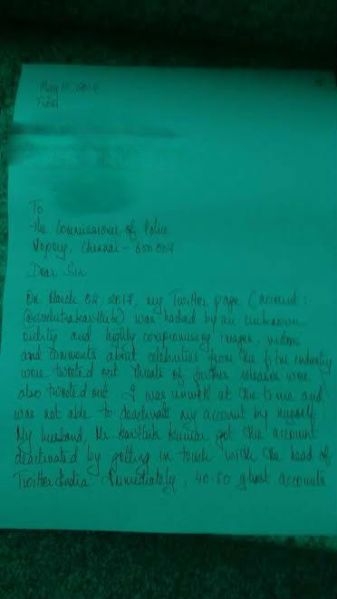 To
The Commissioner of Police
Vepery, Chennai - 600 007
Dear Sir
On March 02, 2017, my Twitter page (account:
was hacked by an unknown
entity and highly compromising images, videos
and comments about celebrities from the film industry
were tweeted out. Threats of further releases were
also tweeted out. I was unwell at the time and
was not able to deactivate my account by myself.
My husband, Mr. Karthik Kumar got the account
deactivated by getting in touch with the head of
Twitter India. Immediately, 40-50 ghost accounts